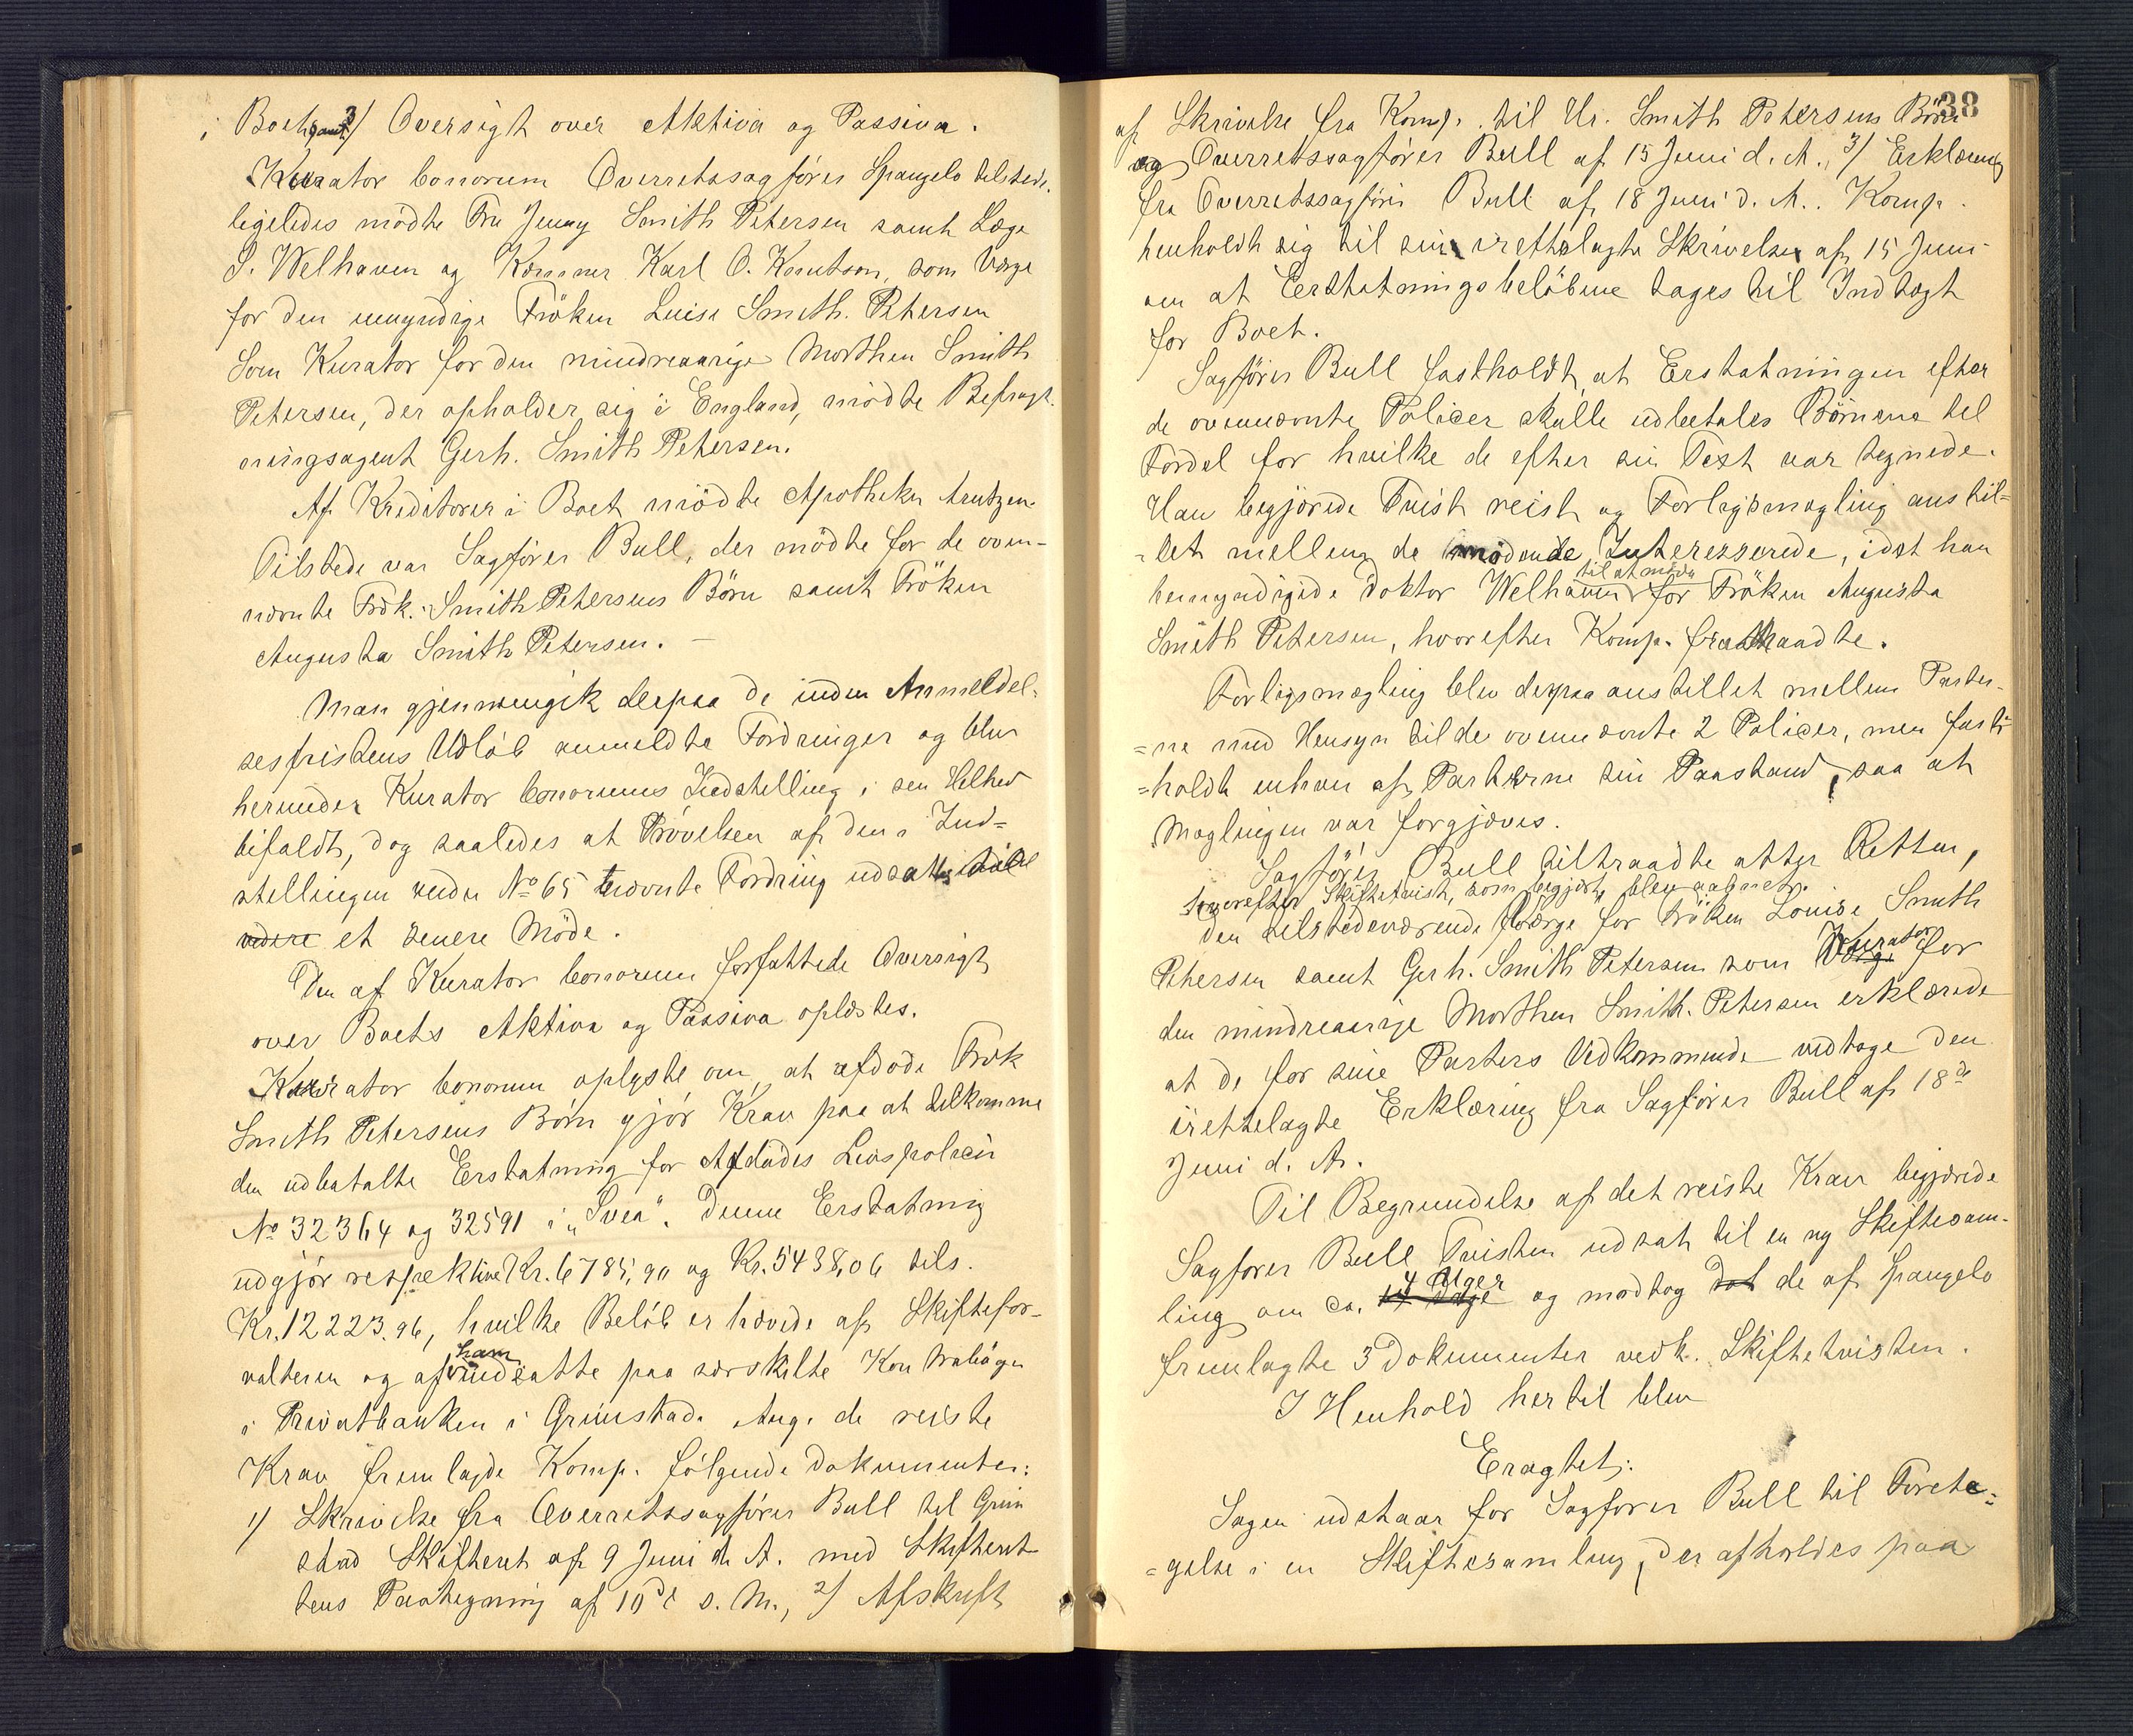 i Boet samt 3/ Oversigt over Aktiva og Passiva.
Kurator bonorum Overretssagfører Spangelo tilstede.
ligeledes mødte Fru Jenny Smith Petersen samt Læge
S. Welhaven og Kæmner Karl O. Knutson, som Værge
for den umyndige Frøken Luise Smith. Petersen
Som Kurator for den mindreaarige Morthen Smith
Petersen, der opholder sig i England, mødte Befragt-
ningsagent Gerh. Smith Petersen.
Af Kreditorer i Boet mødte Apotheker Arntzen
Tilstede var Sagfører Bull, der mødte for de oven-
nævnte Frdk. Smith Petersens Børn samt Frøken
Augusta Smith Petersen. —
Man gjennemgik derpaa de inden Anmeldel-
sesfristens Udløb anmeldte Fordringer og blev
herunder Kurator bonorums Indstilling i sen Helhed
bifaldt, dog saaledes at Prøvelsen af den i Ind=
stillingen under No 65 nævnte Fordring udsattes til
videre et senere Møde.
Den af Kurator bonorum forfattede Oversigt
over Boets Aktiva og Passiva oplæstes.
Kurator bonorum oplyste om, at afdøde Frdk
Smith Petersens Børn gjør Krav paa at tilkomme
den udbetalte Erstatning for Afdødes Livspolicer
No 32364 og 32591 i „Svea". Denne Erstatning
udgjør respektive Kr. 6785,90 og Kr. 5438,06 tils.
Kr. 12223.96, hvilke Beløb er hævede af Skiftefor-
valteren og af ham indsatte paa særskilte Kontrabøger
i Privatbanken i Grimstad. Ang. de reiste
Krav fremlagde Komp. følgende Dokumenter:
1/ Skrivelse fra Overretssagfører Bull til Grim
stad Skifteret af 9 Juni d. A. med Skifteret-
tens Paategning af 10de s. M., 2/ Afskrift
38
af Skrivelse fra Komp. til Hr. Smith Petersens Børn
og Overretssagfører Bull af 15 Juni d. A., 3/ Erklæring
fra Overretssagfører Bull af 18 Juni d. A.. Komp.
henholdt sig til sin irettelagte Skrivelse af 15 Juni
om at Erstatningsbeløbene tages til Indtægt
for Boet.
Sagfører Bull fastholdt, at Erstatningen efter
de ovennævnte Policer skulle udbetales Børnene til
Fordel for hvilke de efter sin Text var tegnede.
Han begjærede Tvist reist og Forligsmægling anstil-
-let mellem de mødende Interesserede, idet han
bemyndigede Doktor Welhaven til at møde for Frøken Augusta
Smith Petersen, hvorefter Komp. fratraadte.
Forligsmægling blev derpaa anstillet mellem Parter-
=ne med Hensyn til de ovennævnte 2 Policer, men fast-
=holdt enhver af Parterne sin Paastand, saa at
Mæglingen var forgjæves.
Sagfører Bull tiltraadte atter Retten,
hvorefter Skiftetvist, som begjært, blev aabnet.
Den tilstedeværende Værge for Frøken Louise Smith
Petersen samt Gerh. Smith Petersen som Værge Kurator for
den mindreaarige Morthen Smith. Petersen erklærede
at de for sine Parters Vedkommende vedtage den
irettelagte Erklæring fra Sagfører Bull af 18de
Juni d. A.
Til Begrundelse af det reiste Krav begjærede
Sagfører Bull Tvisten udsat til en ny Skiftesam-
ling om ca. 14 Dage 4 Uger og modtog det de af Spangelo
fremlagte 3 Dokumenter vedk. Skiftetvisten.
I Henhold hertil blev
Eragtet:
Sagen udstaar for Sagfører Bull til Foreta=
=gelse i en Skiftesamling, der afholdes paa